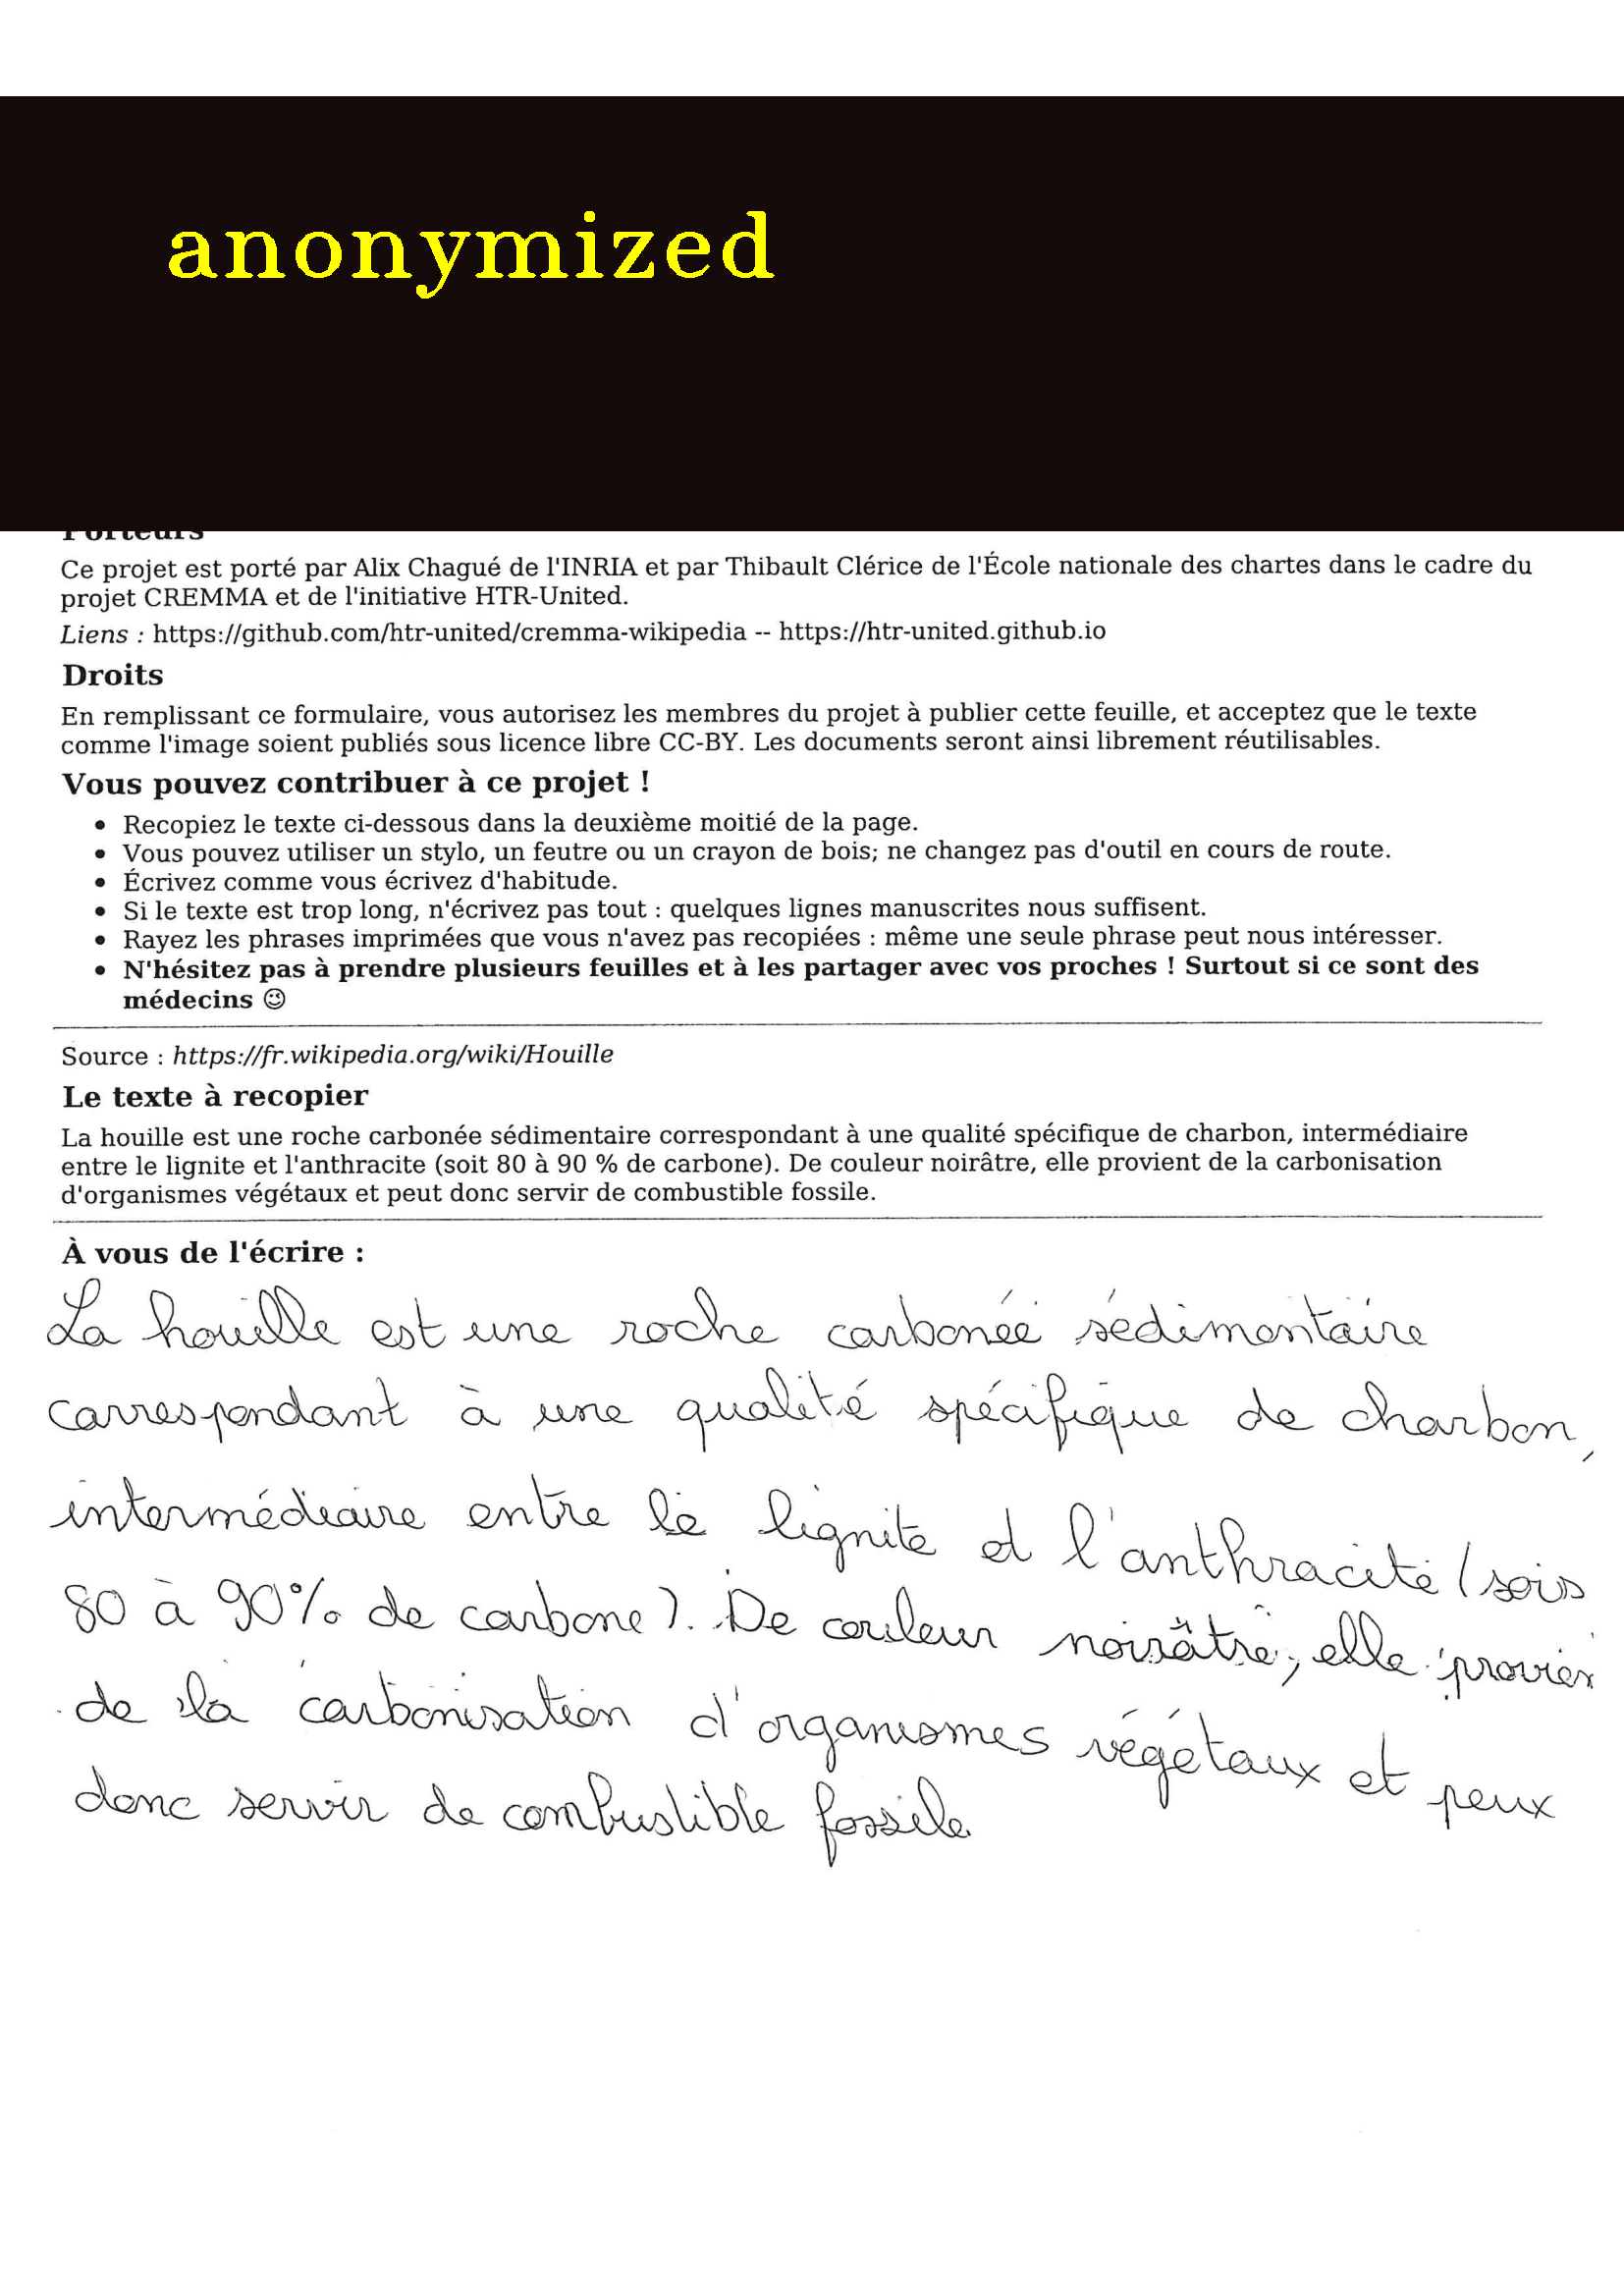 anonymized
Porteurs
Ce projet est porté par Alix Chagué de l'INRIA et par Thibault Clérice de l'École nationale des chartes dans le cadre du
projet CREMMA et de l'initiative HTR-United.
Liens : https://github.com/htr-united/cremma-wikipedia -- https://htr-united.github.io
Droits
En remplissant ce formulaire, vous autorisez les membres du projet à publier cette feuille, et acceptez que le texte
comme l'image soient publiés sous licence libre CC-BY. Les documents seront ainsi librement réutilisables.
Vous pouvez contribuer à ce projet !
• Recopiez le texte ci-dessous dans la deuxième moitié de la page.
• Vous pouvez utiliser un stylo, un feutre ou un crayon de bois; ne changez pas d'outil en cours de route.
• Écrivez comme vous écrivez d'habitude.
• Si le texte est trop long, n'écrivez pas tout : quelques lignes manuscrites nous suffisent.
• Rayez les phrases imprimées que vous n'avez pas recopiées : même une seule phrase peut nous intéresser.
• N'hésitez pas à prendre plusieurs feuilles et à les partager avec vos proches ! Surtout si ce sont des
médecins 😉
Source : https://fr.wikipedia.org/wiki/Houille
Le texte à recopier
La houille est une roche carbonée sédimentaire correspondant à une qualité spécifique de charbon, intermédiaire
entre le lignite et l'anthracite (soit 80 à 90 % de carbone). De couleur noirâtre, elle provient de la carbonisation
d'organismes végétaux et peut donc servir de combustible fossile.
À vous de l'écrire :
La houille est une roche carbonée sédimentaire
correspondant à une qualité spécifique de charbon,
intermédiaire entre le lignite et l'anthracite (sois
80 à 90% de carbone). De couleur noirâtre, elle provien
de la carbonisation d'organismes végétaux et peux
donc servir de combustible fossile